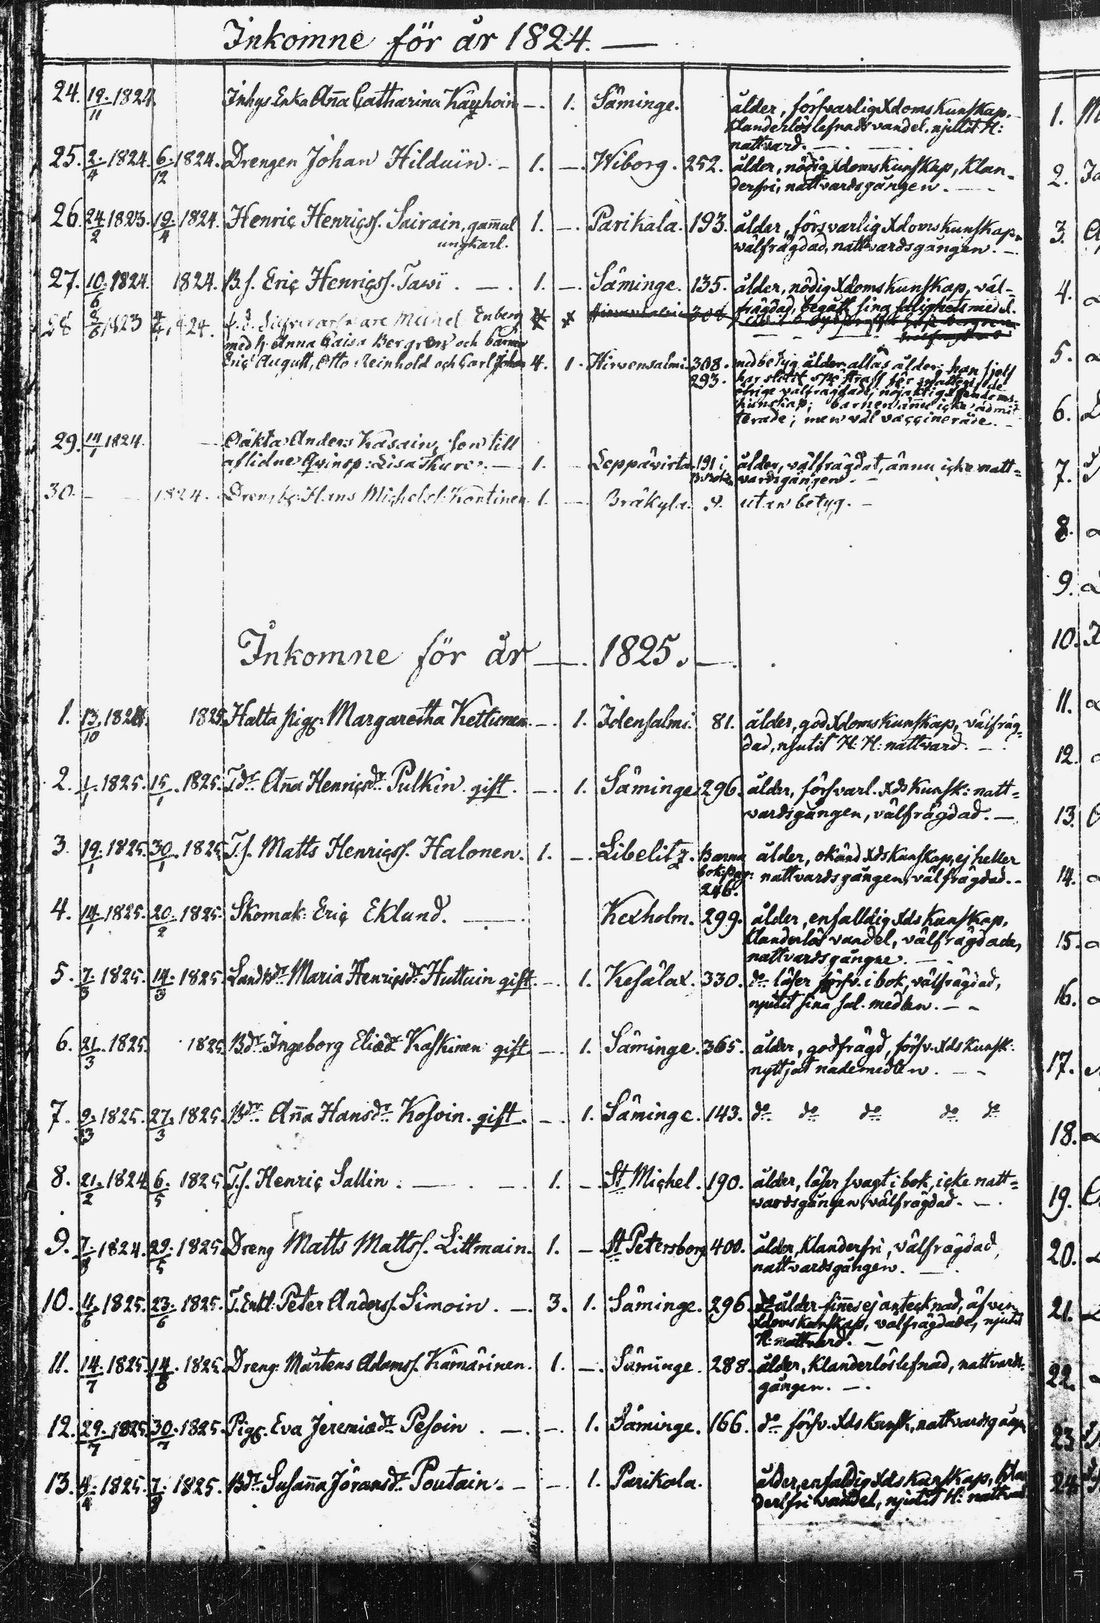 Inkomne för år 1824. —
24. 19/11 1824. Inhys Enka Aña Catharina Käyhoin — . 1. Säminge. ålder, försvarlig Xdoms kunskap,
klanderlös lefnads vandel, njutit H:
nattvard. —
25. 2/4 1824. 6/12 1824. Drengen Johan Hilduin. — 1. — Wiborg. 252. ålder, nödig Xdoms kunskap, klan-
derfri, nattvardsgången. —
26. 24/2 1823. 19/4 1824. Henric Henricss. Sairain, gam̃al 1. — Parikala. 193. ålder, försvarlig Xdoms kunskap,
ungkarl. välfrägdad, nattvardsgången. —
27. 10/6 1824. 1824. B.s. Eric Henricss. Tawi. — . 1. — Säminge. 135. ålder, nödig Xdoms kunskap, väl-
frägdad, begått sina salighets medel.
28 1823 1824. Michel Enberg
med h. Anna Caisa Bergren och barnen
Eric August, Otto Reinhold och Carl Johan 4. 1. Hirvensalmi 308. med betyg ålder, allas ålder; han sjelf
293. har slitit
öfrige välfrägdade,
kunskap; barnen ännu icke admit-
terade; men väl vaccinerade. —
29. 14/1 1824. — Oäkta Anders Käsain, son till
aflidne Qvinsp: Lisa — 1. — Leppävirta. 191 i ålder, välfrägdat, ännu icke natt-
vardsgången. —
30. — — 1824. Drengen Hans Michelss. Kontinen 1. — Bräkyla. 9. utan betyg. —
Inkomne för år — . 1825. — .
1. 13/10 1824. 1825. Hatta pig: Margaretha Kettunen — . 1. Idensalmi. 81. ålder, god Xdoms kunskap, välfräg-
dad, njutit H. H: nattvard. —
2. 1/1 1825. 15/1 1825. T.dr. Aña Henricsdr. Pulkin. gift. — . 1. Säminge 296. ålder, försvarl. Xds kunsk: natt-
vardsgången, välfrägdad. —
3. 19/1 1825. 30/1 1825. T.s. Matts Henricss. Halonen. 1. — Libelitz. Barna ålder, okänd Xds kunskap, ej heller
bok: pag: nattvardsgången, välfrägdad. -
246.
4. 14/1 1825. 20/2 1825. Skomak: Eric Eklund. — Kexholm. 299. ålder, enfalldig Xds kunskap,
klanderlös vandel, välfrägdade,
nattvardsgångne. —
5. 7/3 1825. 14/3 1825. Landtdr. Maria Henricsdr. Huttuin gift. — . 1. Kesälax. 330. do läser försv. i bok, välfrägdad,
njutit sina sal. medlen. — -
6. 21/3 1825. 1825. B.dr. Ingeborg Eliædr. Kaskinen gift — . 1. Säminge. 365. ålder, godfrägd, försv. Xds kunsk:
nyttjat nademedlen. —
7. 9/3 1825. 27/3 1825. B.dr. Aña Hansdr. Kosoin. gift — . 1. Säminge. 143. do do do do do
8. 21/2 1824 6/5 1825 T.s. Henric Sallin. — 1. — St Michel. 190. ålder, läser svagt i bok, icke natt-
vardsgången, välfrägdad. —
9. 7/8 1824. 29/5 1825. Dreng Matts Mattss. Littmain. 1. — St Petersborg 400. ålder, klanderfri, välfrägdad,
nattvardsgången. —
10. 4/6 1825. 23/6 1825. Peter Anderss. Simoin. — 3. 1. Säminge. 296 ålder finnes ej antecknad, äfven
Xdoms kunskap, välfrägdade, njutit
H: nattvard. —
11. 14/7 1825. 14/8 1825. Dreng. Mårtens Adamss. Kämärinen. 1. — Säminge. 288. ålder, klanderlös lefnad, nattvards-
gången. —
12. 29/7 1825. 30/7 1825. Pig: Eva Jeremiædr. Pesoin — . — . 1. Säminge. 166. do försv. Xds kunsk, nattvardsgången
13. 4/4 1825. 7/9 1825. B.dr. Susaña Jöransdr. Poutain. — . 1. Parikala. ålder, enfaldig Xds kunskap, klan
derfri vandel, njutit H: nattvard
1.
2.
3.
4.
5.
6.
7.
8.
9.
10.
11.
12.
13.
14.
15.
16.
17.
18.
19.
20.
21.
22.
23.
24.